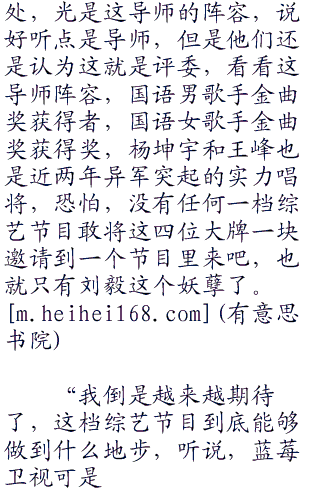 处，光是这导师的阵容，说
好听点是导师，但是他们还
是认为这就是评委，看看这
导师阵容，国语男歌手金曲
奖获得者，国语女歌手金曲
奖获得奖，杨坤宇和王峰也
是近两年异军突起的实力唱
将，恐怕，没有任何一档综
艺节目敢将这四位大牌一块
邀请到一个节目里来吧，也
就只有刘毅这个妖孽了。
[m.heihei168.com](有意思
书院)
“我倒是越来越期待
了，这档综艺节目到底能够
做到什么地步，听说，蓝莓
卫视可是